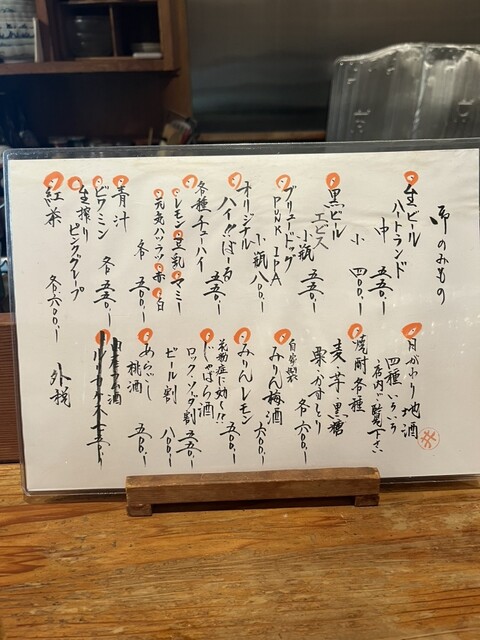 御のみもの
生ビール
ハートランド
中 五五〇.ー
小 四〇〇.ー
黒ビール
エビス
小瓶 五五〇.ー
ブリュードッグ
PUNK IPA
小瓶 八〇〇.ー
オリジナル
ハイ!!ぼーる
五五〇.ー
各種チューハイ
レモン 豆乳 マミー
元気ハツラツ 赤 白
各 五〇〇.ー
青汁
ビタミン 各 五五〇.ー
生搾り
ピングレープ
紅茶 各六〇〇.ー
月がわり地酒
四種いろいろ
店内ご覧下さい
焼酎各種
麦・芋・黒糖
栗・かすとり
各 六〇〇.ー
自家製
みりん梅酒 六〇〇.ー
みりんレモン 五〇〇.ー
花粉症に効く!!
じゃばら酒
ロック・ソーダ割 五五〇.ー
ビール割 八〇〇.ー
あらごし
桃酒 五〇〇.ー
外税